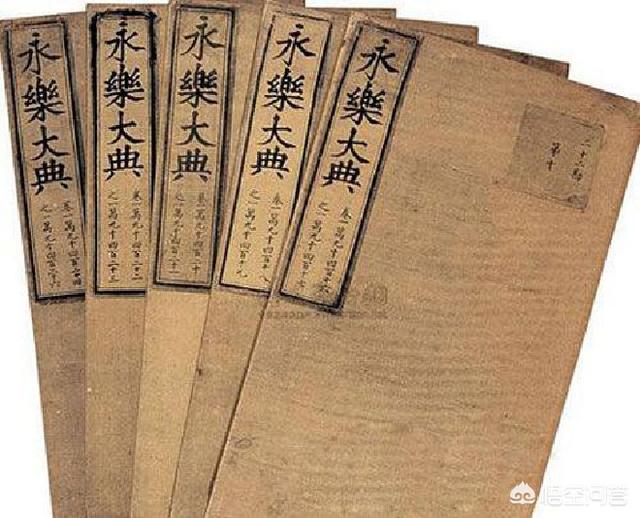 第十
永樂大典
卷一萬九千四百十六
之一萬九千四百十七
永樂大典
卷一萬九千四百十八
之一萬九千四百十九
永樂大典
卷一萬九千四百二十
之一萬九千四百二十一
永樂大典
卷一萬九千四百二十二
之一萬九千四百二十三
永樂大典
卷一萬九千四百二十四
之一萬九千四百二十六
悟空问答